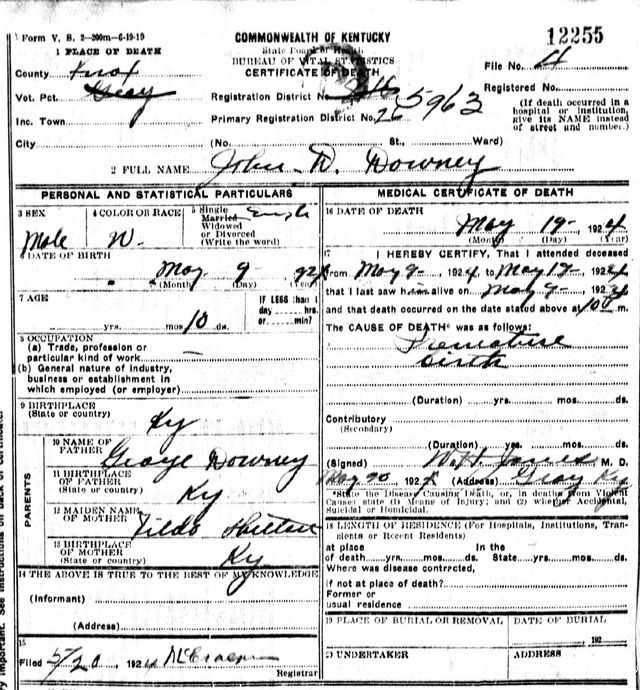 Form V. S. 2-200m-6-19-19
COMMONWEALTH OF KENTUCKY
State Board of Health
BUREAU OF VITAL STATISTICS
CERTIFICATE OF DEATH
12255
1 PLACE OF DEATH
County Knox
File No. 4
Vot. Pct. Gray
Registration District No.
Registered No.
5963
Inc. Town
Primary Registration District No. 26
(If death occurred in a hospital or institution, give its NAME instead of street and number.)
City (No. St., Ward)
2 FULL NAME John D. Downey
PERSONAL AND STATISTICAL PARTICULARS
3 SEX
Male
4 COLOR OR RACE
W.
5 Single
Married
Widowed
or Divorced
(Write the word)
Single
DATE OF BIRTH
May 9 1924
(Month) (Day) (Year)
7 AGE
yrs. mos 10 ds.
IF LESS than 1
day hrs.
or min?
8 OCCUPATION
(a) Trade, profession or
particular kind of work —
(b) General nature of industry,
business or establishment in
which employed (or employer)
9 BIRTHPLACE
(State or country)
Ky
PARENTS
10 NAME OF
FATHER
George Downey
11 BIRTHPLACE
OF FATHER
(State or country)
Ky
12 MAIDEN NAME
OF MOTHER
Tildo
13 BIRTHPLACE
OF MOTHER
(State or country)
Ky
14 THE ABOVE IS TRUE TO THE BEST OF MY KNOWLEDGE
(Informant)
(Address)
15
Filed 5/20 1924
Registrar
MEDICAL CERTIFICATE OF DEATH
16 DATE OF DEATH
May 19 1924
(Month) (Day) (Year)
17 I HEREBY CERTIFY, That I attended deceased
from May 9 1924 to May 19 1924
that I last saw him alive on May 9 1924
and that death occurred on the date stated above at m.
The CAUSE OF DEATH* was as follows:
Premature
Birth
(Duration) yrs. mos. ds.
Contributory
(Secondary)
(Duration) yrs. mos. ds.
(Signed) W H Jones M. D.
May 20 1924 (Address) Gray Ky
*State the Disease Causing Death, or, in deaths from Violent
Causes state (1) Means of Injury; and (2) whether Accidental,
Suicidal or Homicidal.
18 LENGTH OF RESIDENCE (For Hospitals, Institutions, Transients or Recent Residents)
at place In the
of death yrs. mos. ds. State yrs. mos. ds.
Where was disease contrcted,
if not at place of death?
Former or
usual residence
19 PLACE OF BURIAL OR REMOVAL
DATE OF BURIAL
192
20 UNDERTAKER
ADDRESS